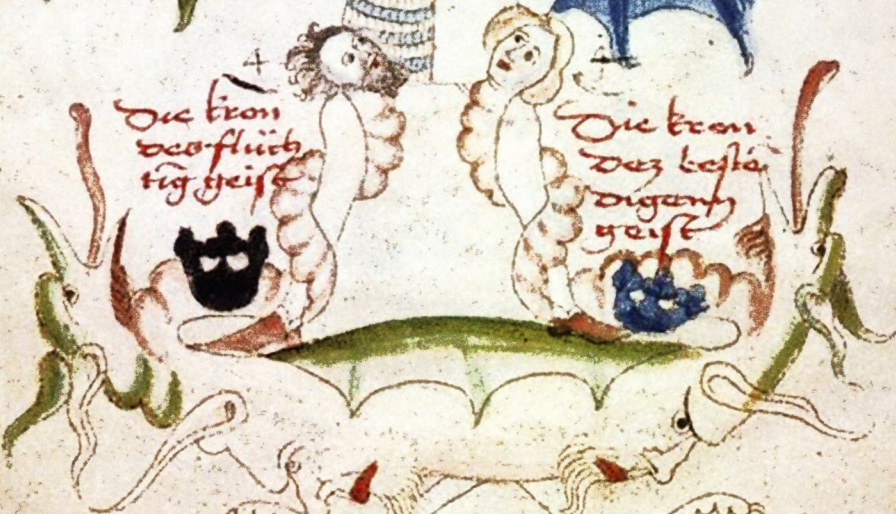 4
Die kron
des flüch
tig geist
4
Die kron
dez beste
digenn
geist